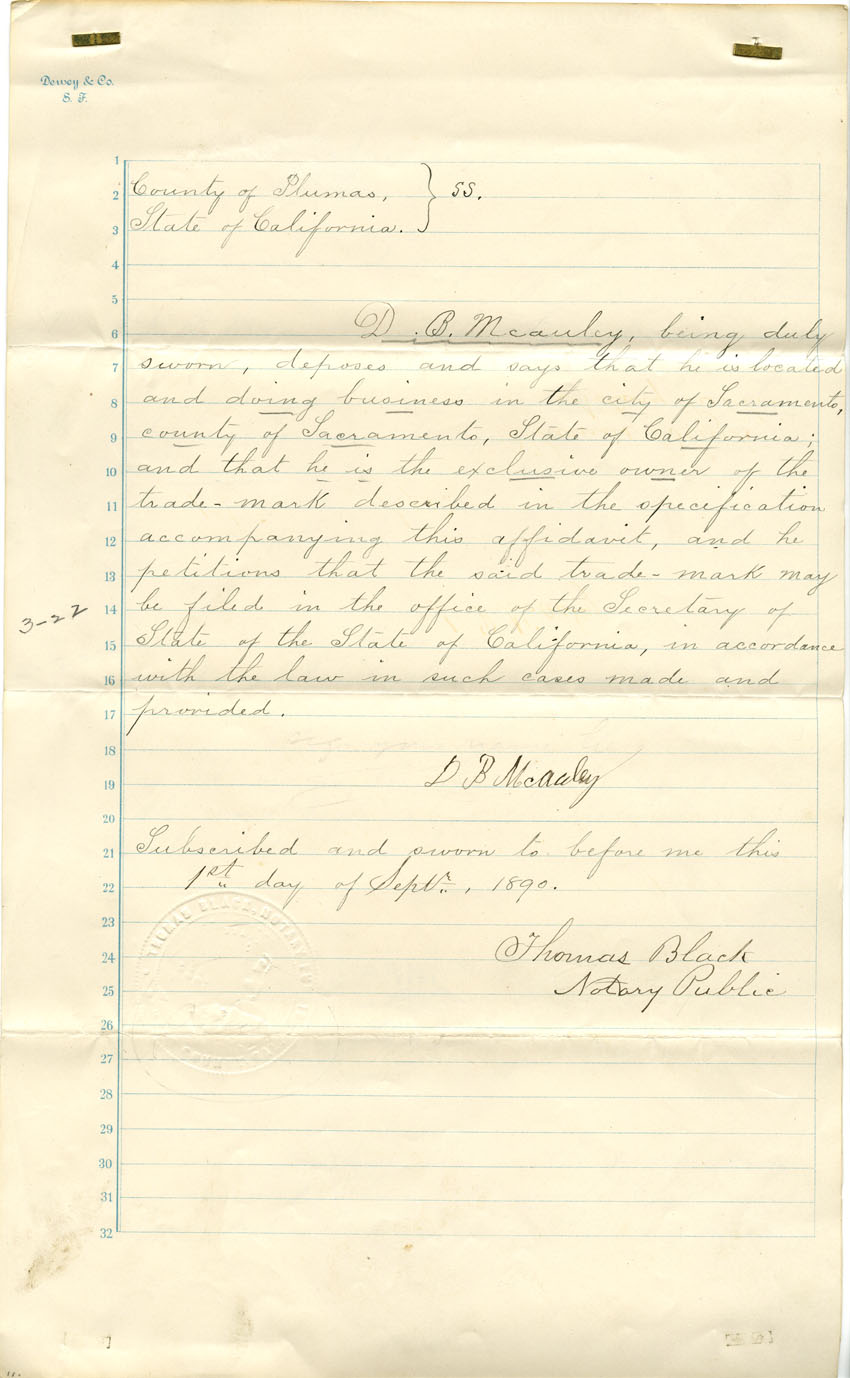 Dewey & Co.
S. F.
1
2 County of Plumas, } ss.
3 State of California.
4
5
6 D. B. Mcauley, being duly
7 sworn, deposes and says that he is located
8 and doing business in the city of Sacramento,
9 county of Sacramento, State of California;
10 and that he is the exclusive owner of the
11 trade-mark described in the specification
12 accompanying this affidavit, and he
13 petitions that the said trade-mark may
3-22
14 be filed in the office of the Secretary of
15 State of the State of California, in accordance
16 with the law in such cases made and
17 provided.
18
19 D B McAuley
20
21 Subscribed and sworn to before me this
22 1st day of Septr., 1890.
23
24 Thomas Black
25 Notary Public
26
27
28
29
30
31
32
THOMAS BLACK, NOTARY